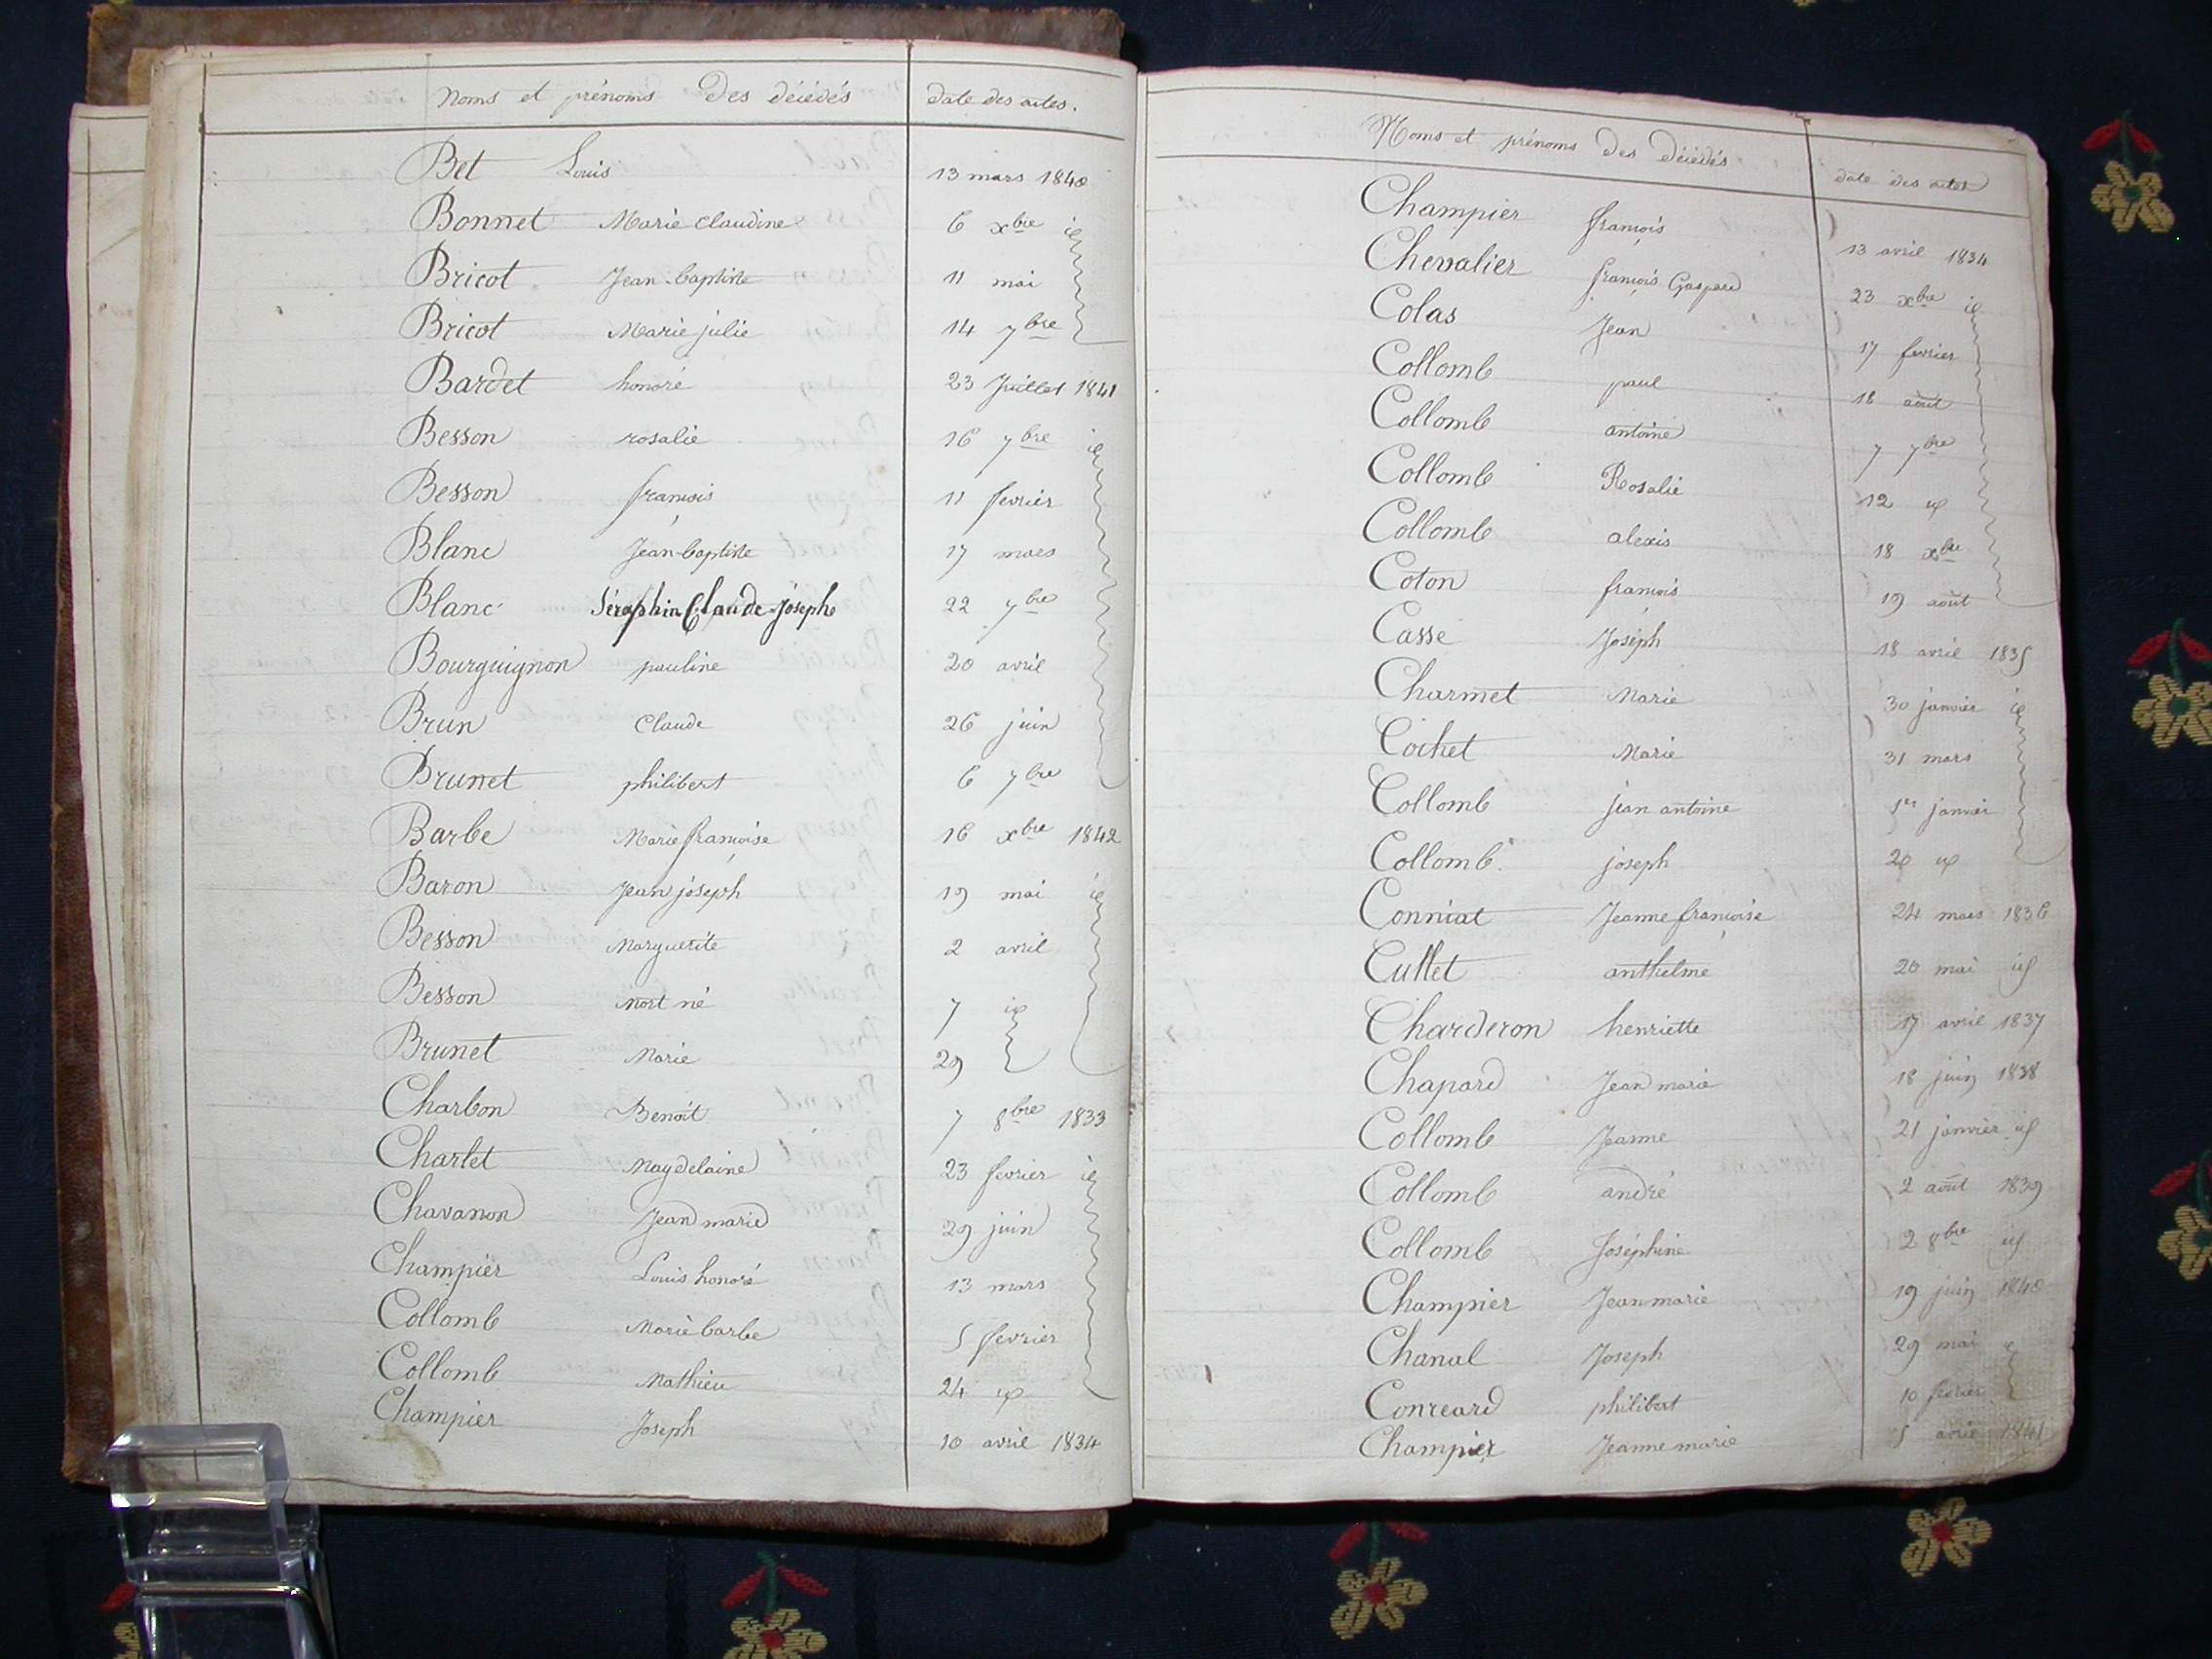 Noms et prénoms des décédés date des actes.
Bet Louis 13 mars 1840
Bonnet Marie Claudine 6 xbre id
Bricot Jean-baptiste 11 mai
Bricot Marie julie 14 7bre
Bardet honoré 23 Juillet 1841
Besson rosalie 16 7bre id
Besson françois 11 fevrier
Blanc Jean-baptiste 17 mars
Blanc Séraphin Claude Joseph 22 7bre
Bourguignon pauline 20 avril
Brun Claude 26 juin
Brunet philibert 6 7bre
Barbe Marie françoise 16 xbre 1842
Baron Jean joseph 19 mai id
Besson Marguerite 2 avril
Besson Mort né 7 id
Brunet Marie 29
Charbon Benoit 7 8bre 1833
Charlet Magdelaine 23 fevrier id
Chavanon Jean marie 29 juin
Champier Louis honoré 13 mars
Collomb Marie barbe 5 fevrier
Collomb Mathieu 24 id
Champier Joseph 10 avril 1834
Noms et prénoms des décédés date des actes
Champier françois 13 avril 1834
Chevalier françois Gaspard 23 xbre id
Colas Jean 17 fevrier
Collomb paul 18 août
Collomb antoine 7 7bre
Collomb Rosalie 12 id
Collomb alexis 18 xbre
Coton françois 19 août
Casse Joseph 18 avril 1835
Charmet Marie 30 janvier id
Cochet Marie 31 mars
Collomb jean antoine 1er janvier
Collomb joseph 20 id
Conniat Jeanne françoise 24 mars 1836
Cullet anthelme 20 mai id
Charderon henriette 17 avril 1837
Chapard Jean marie 18 juin 1838
Collomb Jeanne 21 janvier id
Collomb andré 2 août 1839
Collomb Joséphine 2 8bre id
Champier Jean marie 19 juin 1840
Chanal Joseph 29 mai
Conreard philibert 10 fevrier
Champier Jeanne marie 5 avril 1841